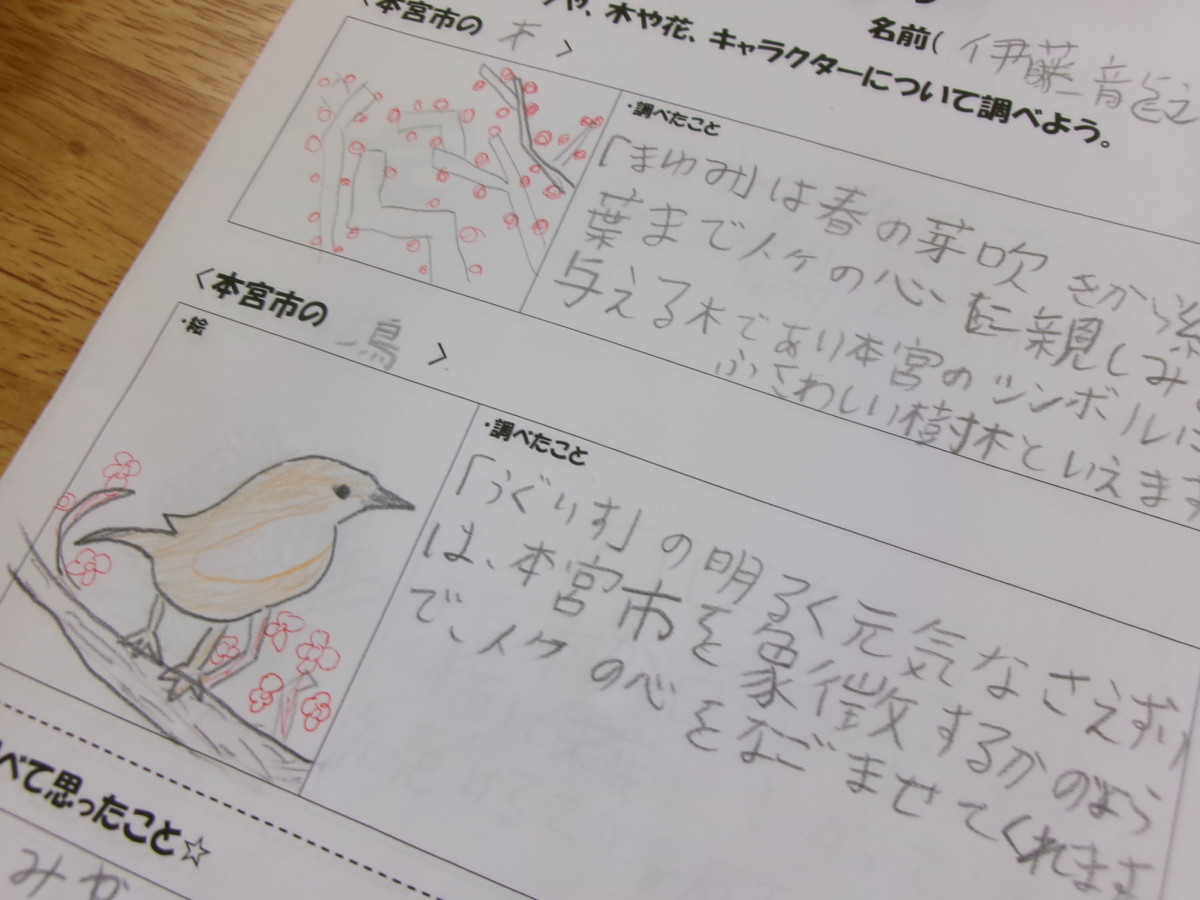 名前( 伊藤 音
や、木や花、キャラクターについて調べよう。
〈本宮市の 木 〉
・調べたこと
「まゆみ」は春の芽吹きから
葉まで人々の心に親しみ
与える木であり本宮のシンボルに
ふさわしい樹木といえます
〈本宮市の 鳥 〉
・絵
・調べたこと
「うぐいす」の明るく元気なさえずり
は、本宮市を象徴するかのよう
で、人々の心をなごませてくれます
べて思ったこと☆
みか